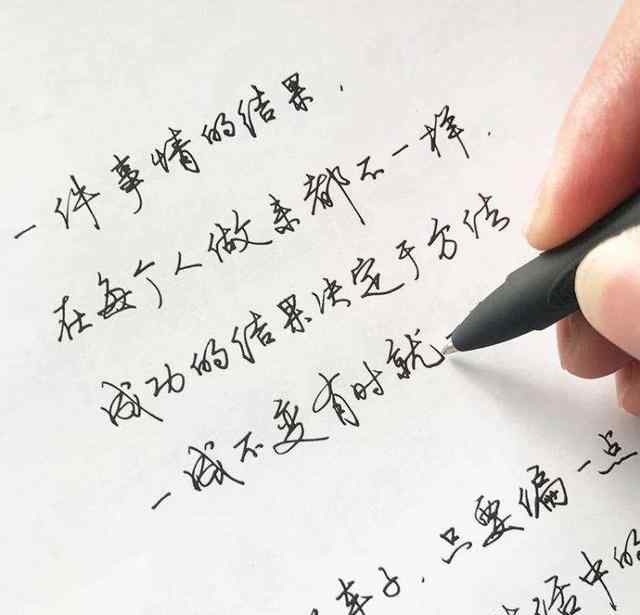 一件事情的结果.
在每个人做来都不一样.
成功的结果决定于方法
一成不变有时就
车子.只要偏一点
活中的